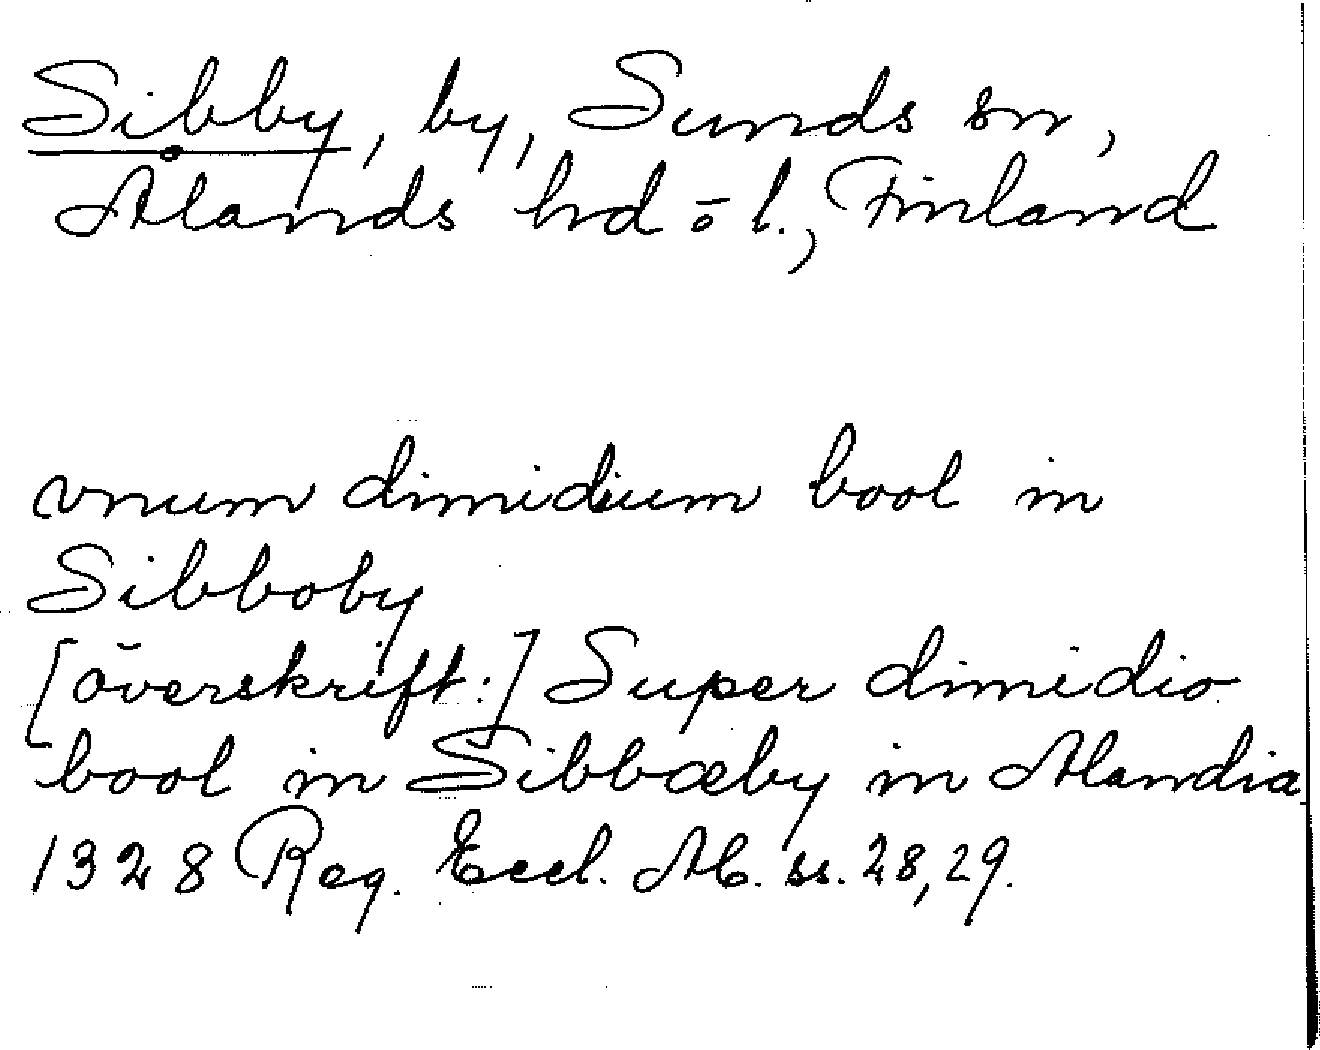 Sibby, by, Sunds sn,
Ålands hd o l., Finland
vnum dimidium bool in
Sibboby
[överskrift:] Super dimidio
bool in Sibbæby in Alandia
1328 Reg. Eccl. Ab. ss. 28, 29.